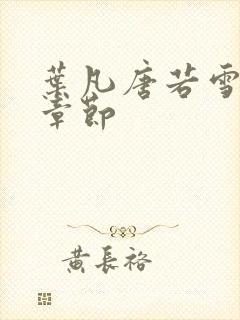 葉凡唐若雪
章節
黃長裕